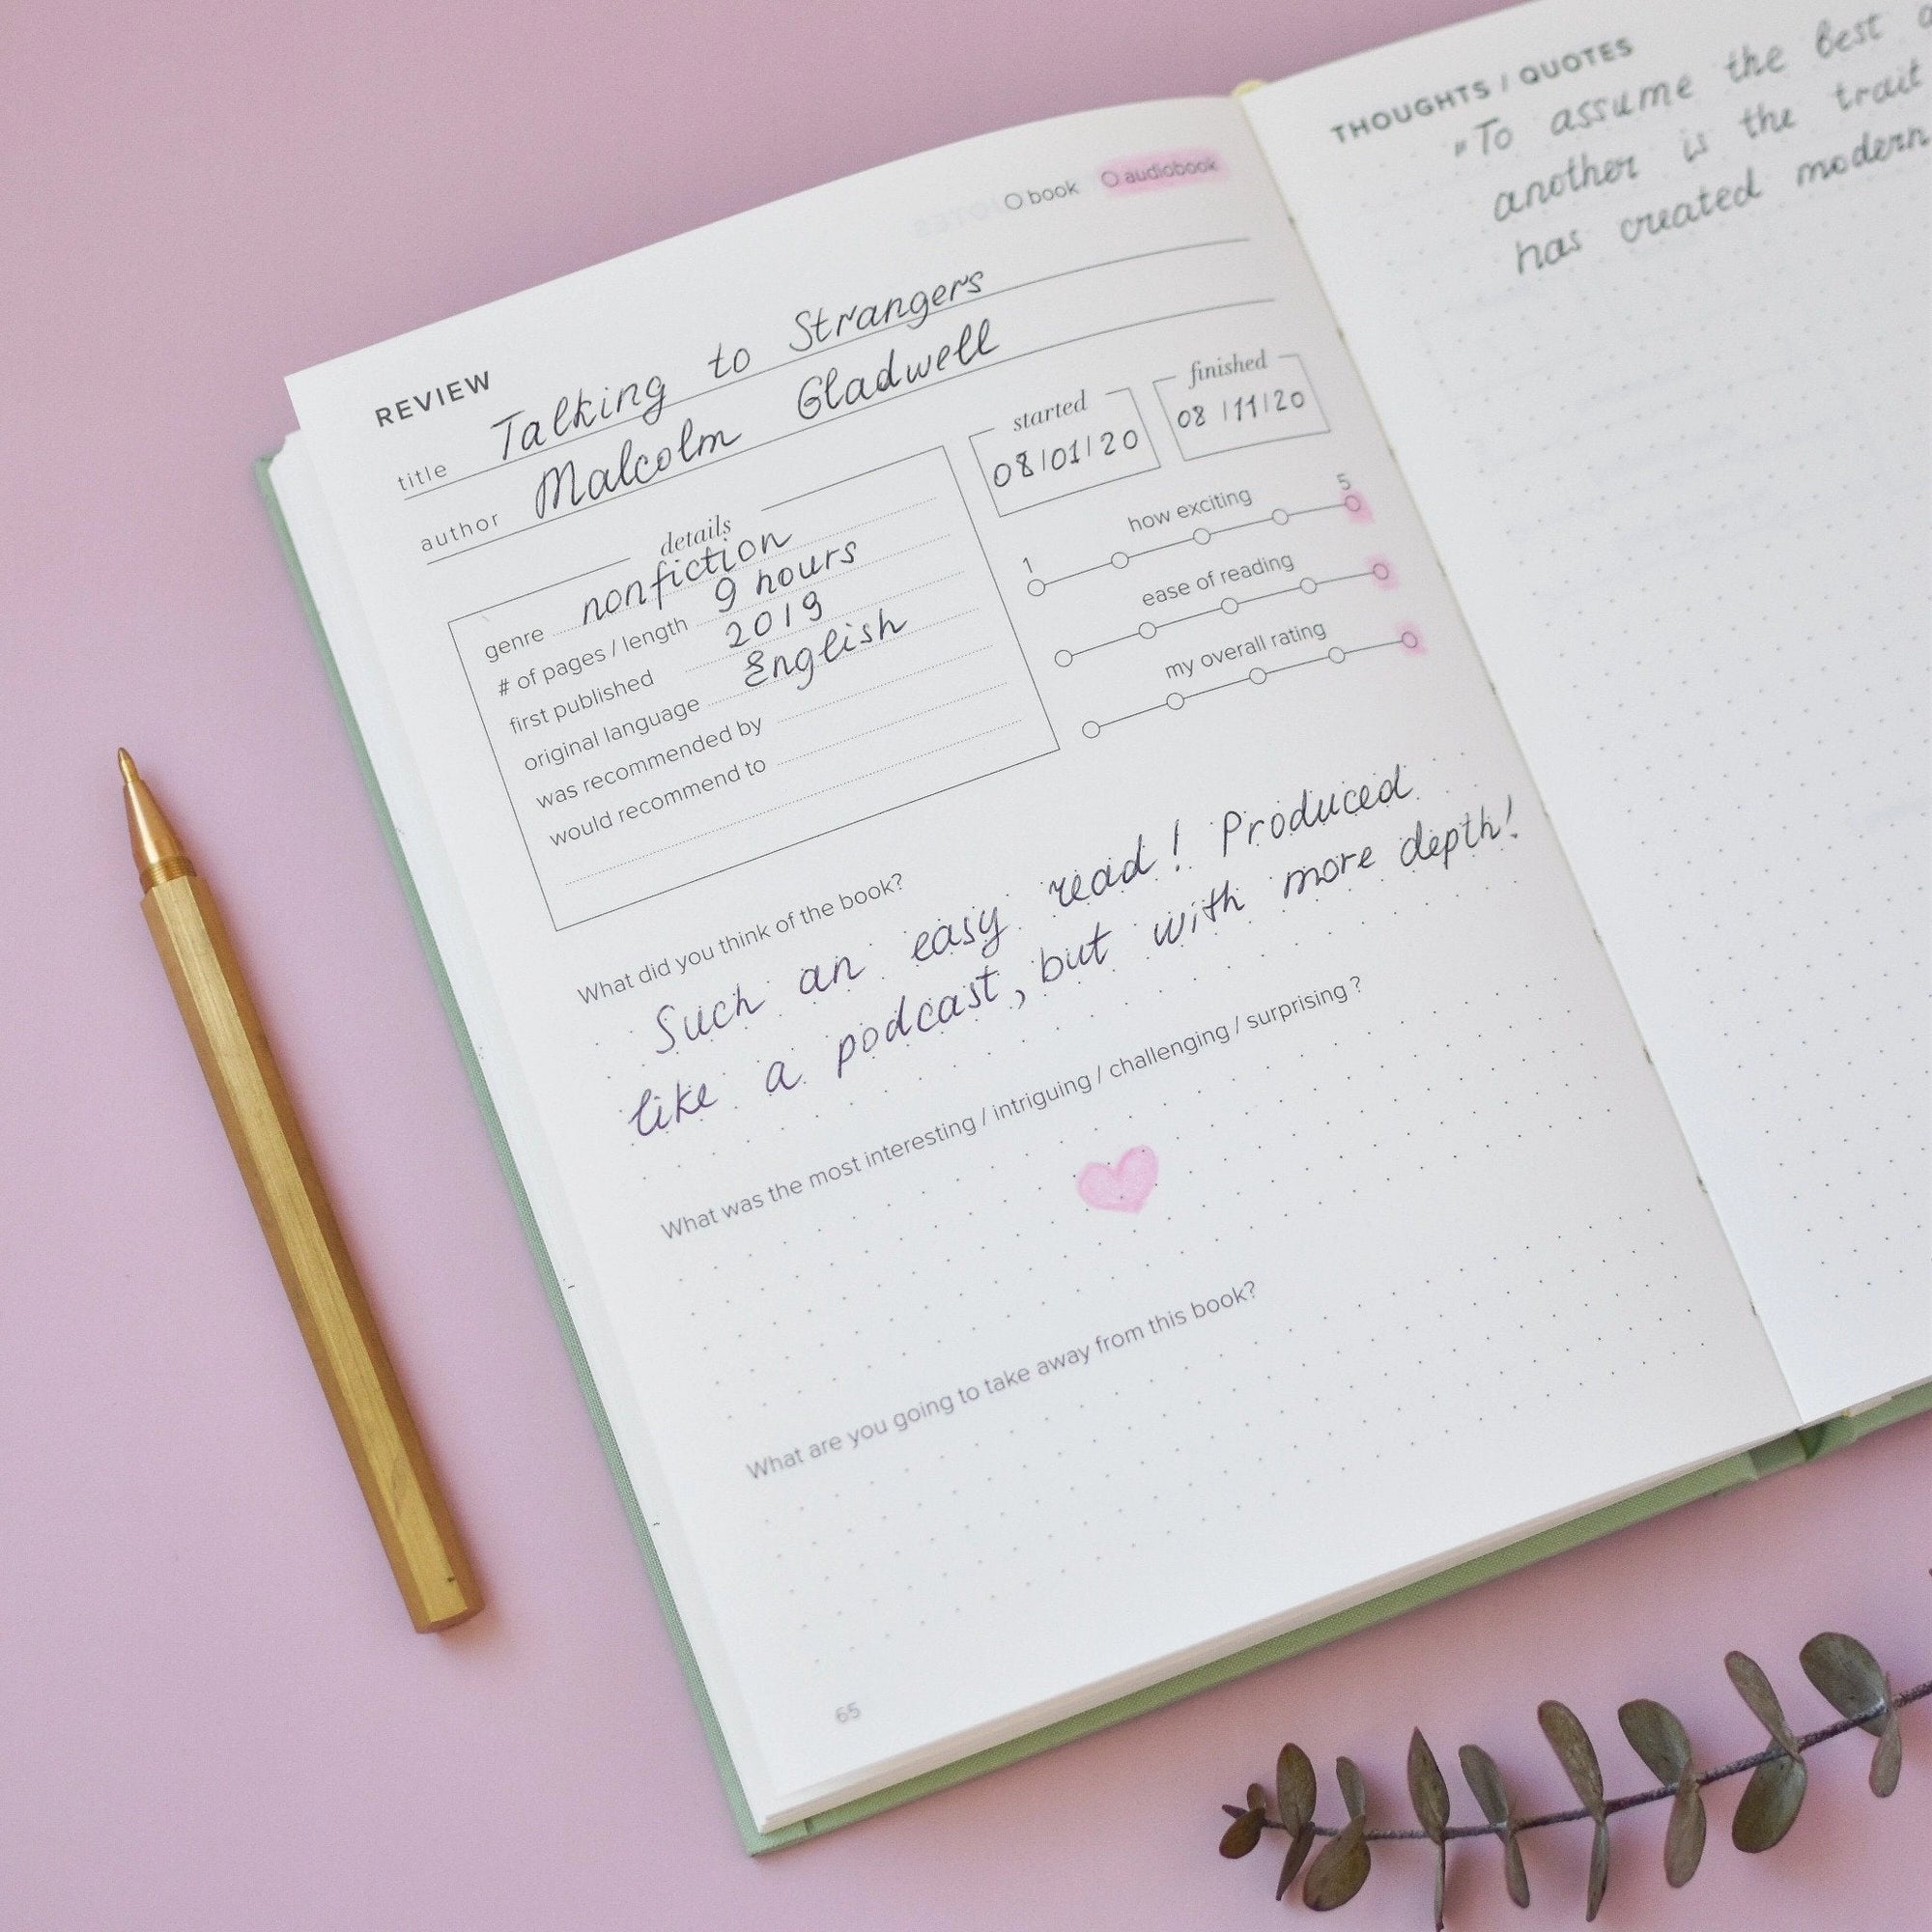 REVIEW
book audiobook
title Talking to Strangers
author Malcolm Gladwell
details
genre nonfiction
# of pages / length 9 hours
first published 2019
original language English
was recommended by
would recommend to
started
08/01/20
finished
08/11/20
how exciting
1 5
ease of reading
my overall rating
What did you think of the book?
Such an easy read! Produced
like a podcast, but with more depth!
What was the most interesting / intriguing / challenging / surprising ?
What are you going to take away from this book?
65
THOUGHTS / QUOTES
"To assume the best
another is the trait
has created modern